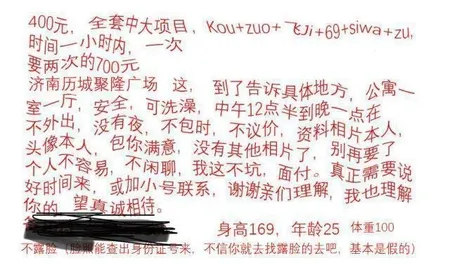 400元， 全套中大项目，Kou+zuo+飞Ji+69+siwa+zu,
时间一小时内，一次
要两次的700元
济南历城聚隆广场 这， 到了告诉具体地方，公寓一
室一厅，安全，可洗澡，中午12点半到晚一点在
不外出，没有夜，不包时，不议价，资料相片本人，
头像本人，包你满意，没有其他相片了，别再要了
个人不容易，不闲聊，我这不坑，面付。真正需要说
好时间来，或加小号联系，谢谢亲们理解，我也理解
你的 望真诚相待。
身高169，年龄25 体重100
不露脸（脸照能查出身份证号来，不信你就去找露脸的去吧，基本是假的）